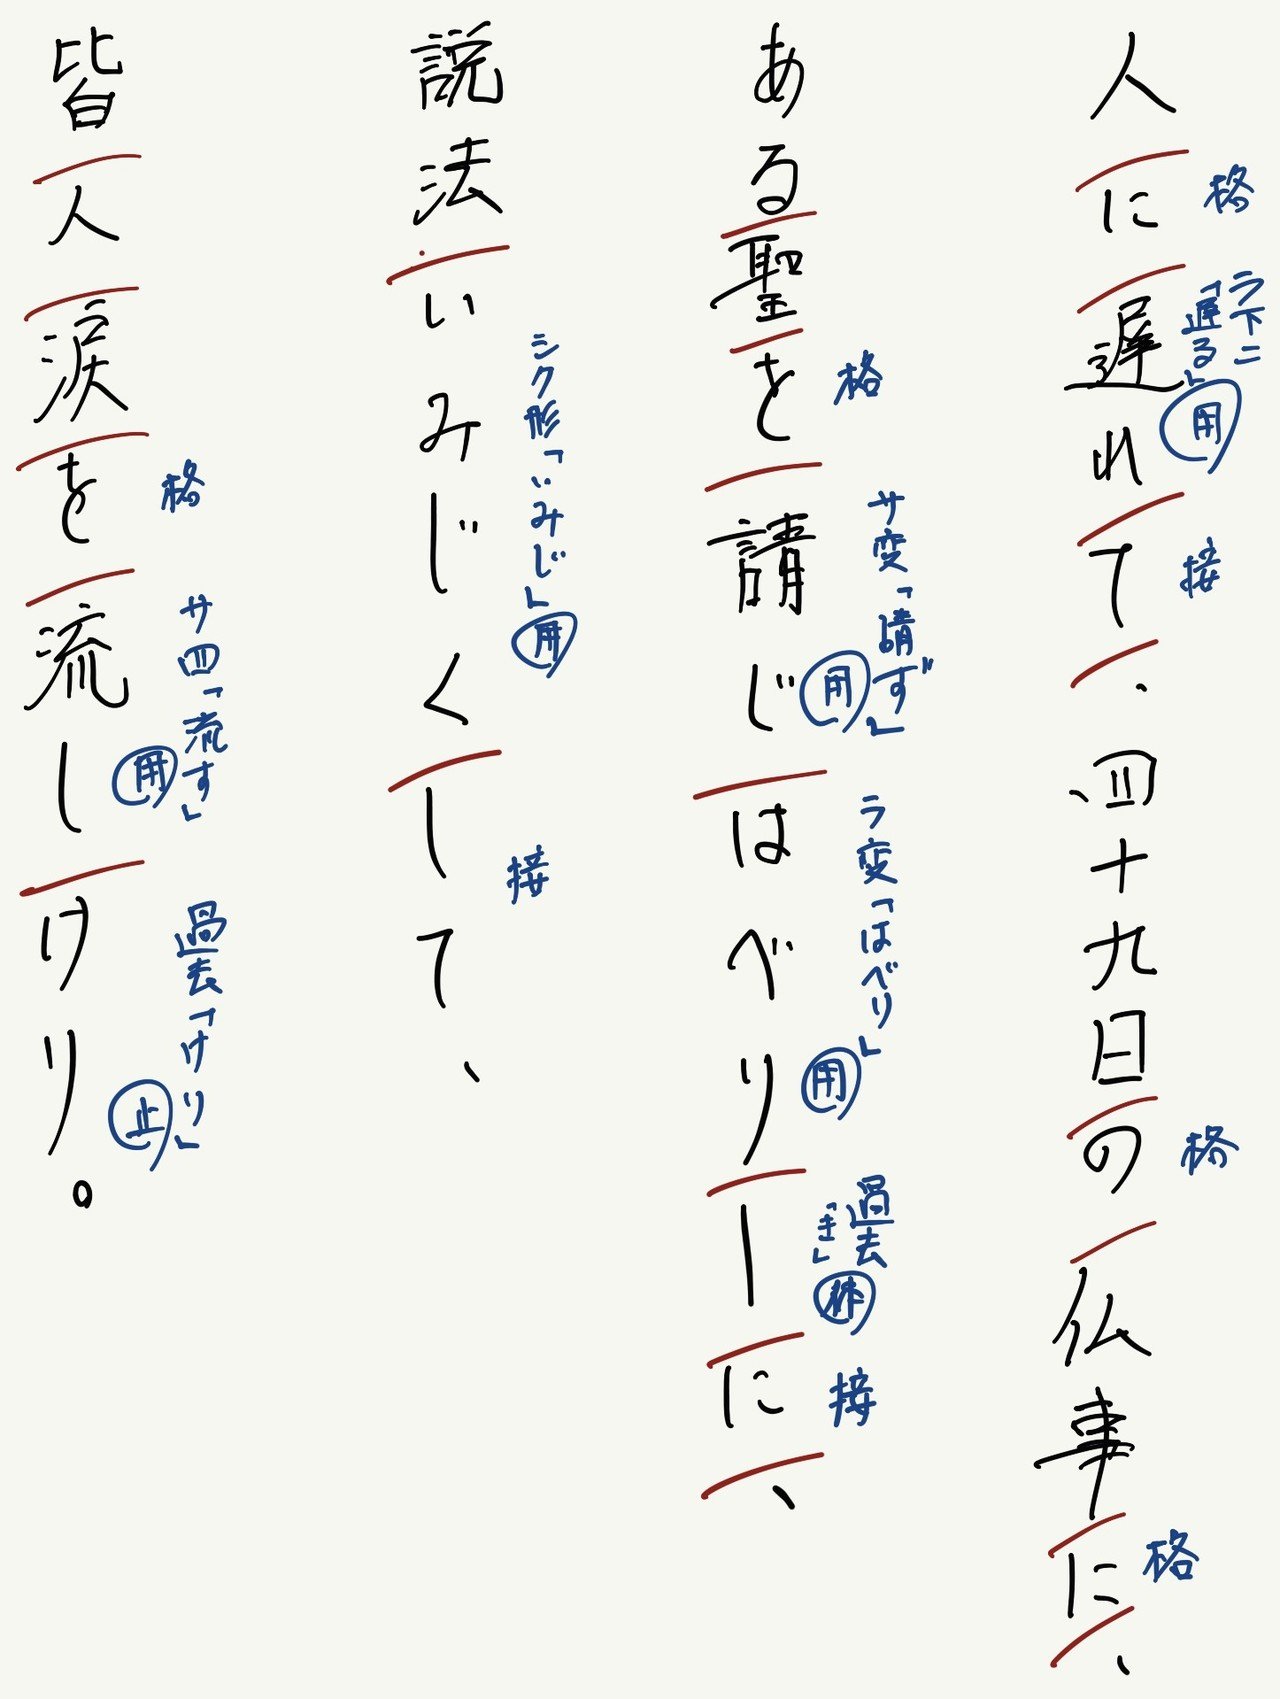 人に遅れて、四十九日の仏事に、
格
ラ下二
「遅る」
用
接
格
格
ある聖を請じはべりしに、
格
サ変「請ず」
用
ラ変「はべり」
用
過去
「き」
体
接
説法いみじくして、
シク形「いみじ」
用
接
皆人涙を流しけり。
格
サ四「流す」
用
過去「けり」
止